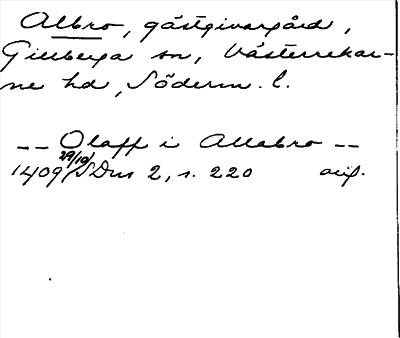 Albro, gästgivargård,
Gillberga sn, Västerrekar-
ne hd, Söderm. l.
-- Olaff i Allabro --
1409 29/10 SDns 2, s. 220 avs.